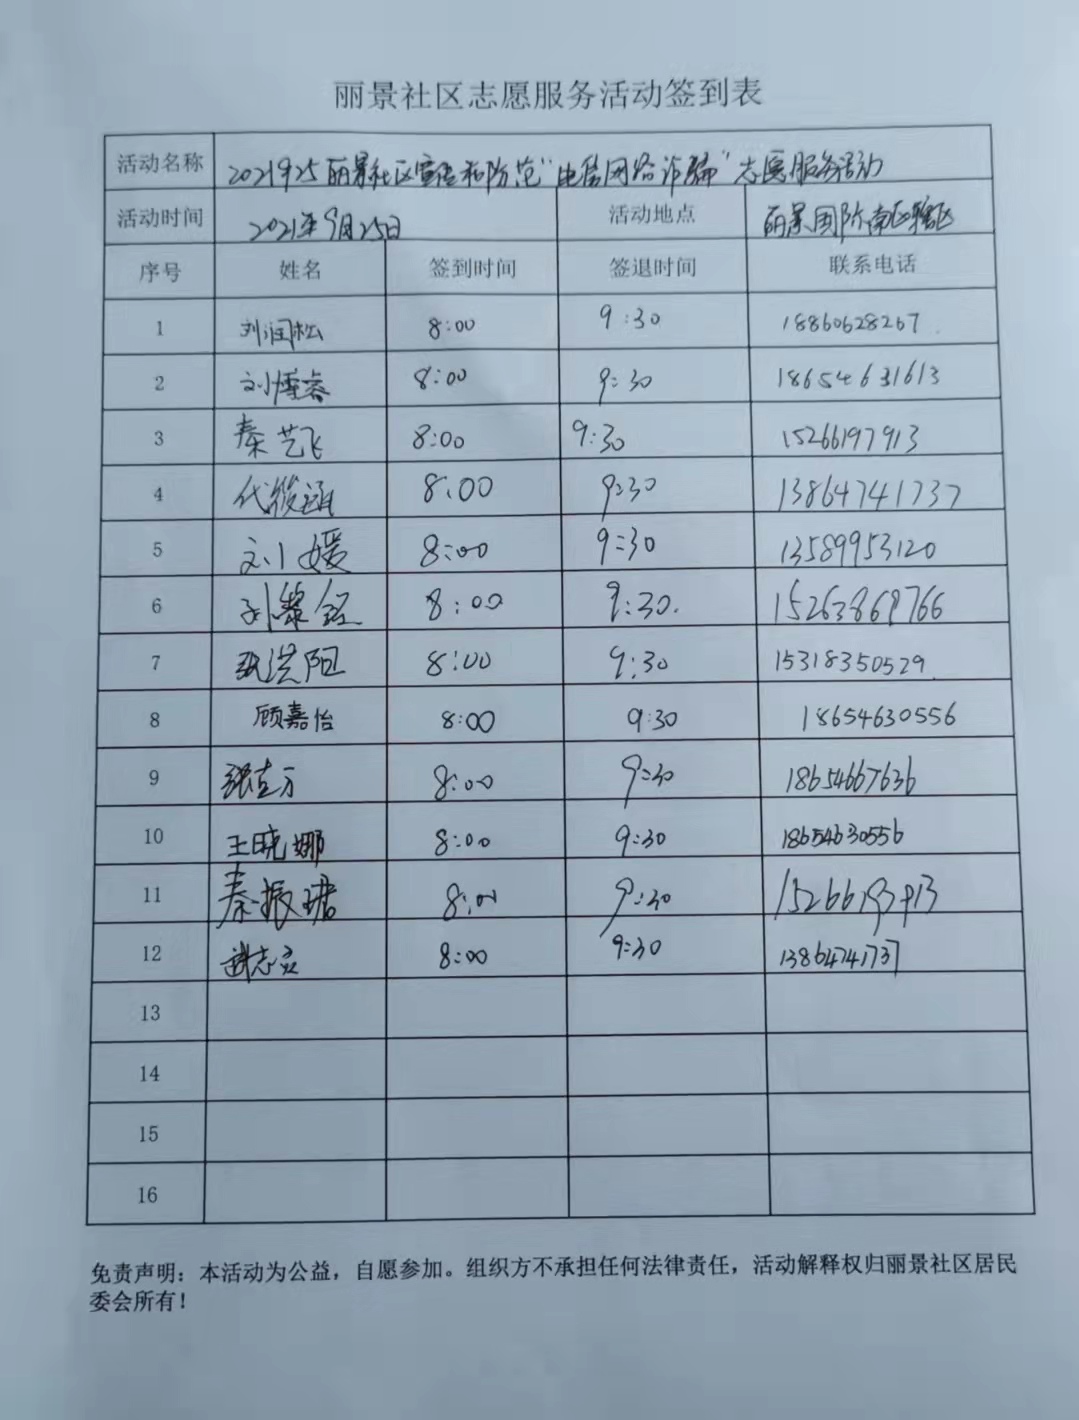 丽景社区志愿服务活动签到表
活动名称 2021925丽景社区宣传和防范"电信网络诈骗"志愿服务活动
活动时间 2021年9月25日 活动地点 丽景国际南区辖区
序号 姓名 签到时间 签退时间 联系电话
1 刘润松 8:00 9:30 18860628267
2 刘博睿 8:00 9:30 18654631613
3 秦艺飞 8:00 9:30 15266197913
4 代俊涵 8:00 9:30 13864741737
5 刘小媛 8:00 9:30 13589953120
6 刘黎铭 8:00 9:30 15263869766
7 张洪阳 8:00 9:30 15318350529
8 顾嘉怡 8:00 9:30 18654630556
9 8:00 9:30 18654667636
10 王晓娜 8:00 9:30 18654630556
11 秦振珺 8:00 9:30
12 8:00 9:30 13864741737
13
14
15
16
免责声明：本活动为公益，自愿参加。组织方不承担任何法律责任，活动解释权归丽景社区居民
委会所有！